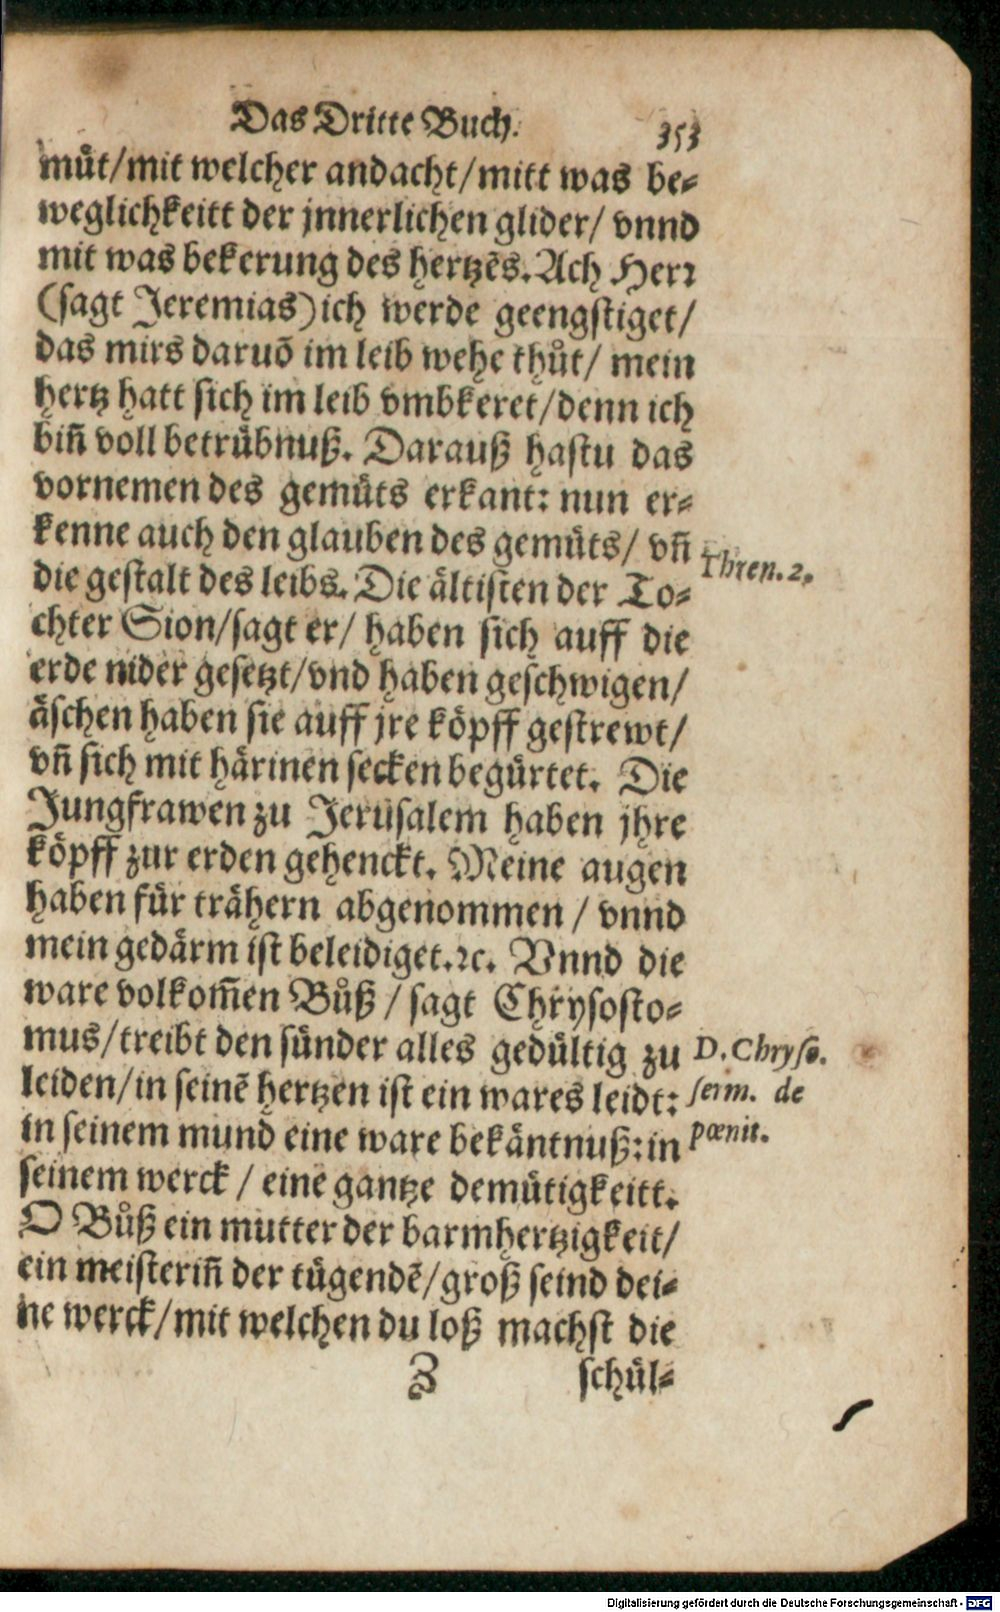 Das Dritte Buch. 353
müt/mit welcher andacht/mitt was be⸗
weglichkeitt der jnnerlichen glider/ vnnd
mit was bekerung des hertzẽs. Ach Herr
(sagt Jeremias) ich werde geengstiget/
das mirs daruõ im leib wehe thůt/ mein
hertz hatt sich im leib vmbkeret/denn ich
biñ voll betrübnuß. Darauß hastu das
vornemen des gemüts erkant: nun er⸗
kenne auch den glauben des gemüts/ vñ
Thren. 2.
die gestalt des leibs. Die ältisten der To⸗
chter Sion/sagt er/ haben sich auff die
erde nider gesetzt/vnd haben geschwigen/
äschen haben sie auff jre köpff gestrewt/
vñ sich mit härinen secken begürtet. Die
Jungfrawen zu Jerusalem haben jhre
köpff zur erden gehenckt. Meine augen
haben für trähern abgenommen / vnnd
mein gedärm ist beleidiget.ꝛc. Vnnd die
ware volkom̃en Bůß / sagt Chrysosto⸗
mus/treibt den sünder alles gedültig zu
D. Chryso.
leiden/in seinẽ hertzen ist ein wares leidt:
serm. de
in seinem mund eine ware bekäntnuß: in
pœnit.
seinem werck / eine gantze demütigkeitt.
O Bůß ein mutter der barmhertzigkeit/
ein meisteriñ der tügendẽ/groß seind dei⸗
ne werck/mit welchen du loß machst die
Z schül⸗
Digitalisierung gefördert durch die Deutsche Forschungsgemeinschaft - DFG